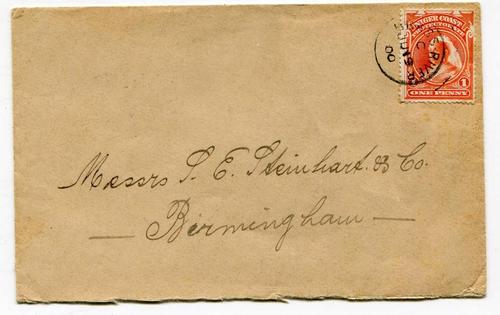 NIGER COAST
PROTECTORATE
1
ONE PENNY
RIVER
C
JU 19
00
Messrs S. E. Steinhart & Co.
Birmingham